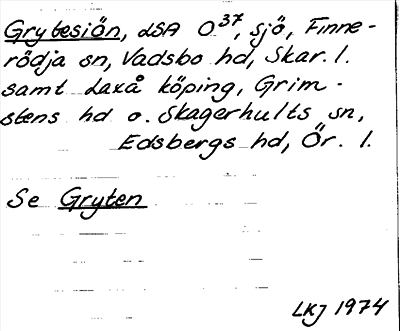 Grytesiön, LSA O³⁷, sjö, Finne-
rödja sn, Vadsbo hd, Skar. l.
samt Laxå köping, Grim-
stens hd o. Skagerhults sn,
Edsbergs hd, Ör. l.
Se Gryten
LKJ 1974